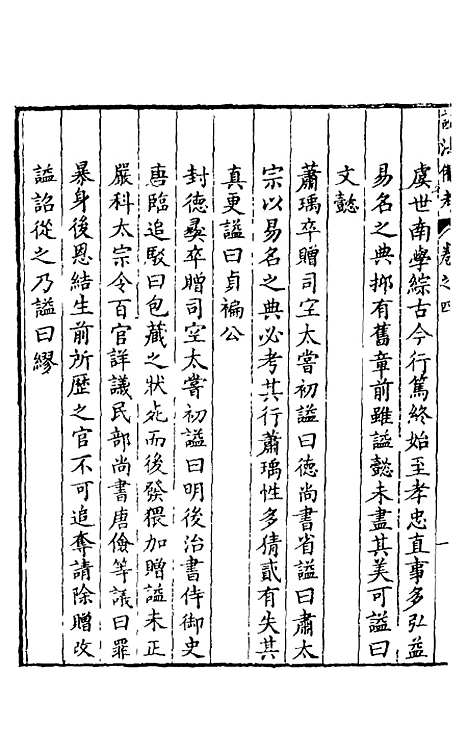 諡法備考 卷之四 一
虞世南學綜古今行篤終始至孝忠直事多弘益
易名之典抑有舊章前雖諡懿未盡其美可諡曰
文懿
蕭瑀卒贈司空太嘗初諡曰德尚書省諡曰肅太
宗以易名之典必考其行蕭瑀性多猜貳有失其
真更諡曰貞褊公
封德彞卒贈司空太嘗初諡曰明後治書侍御史
唐臨追駁曰包藏之狀死而後發猥加贈諡未正
嚴科太宗令百官詳議民部尚書唐儉等議曰罪
暴身後恩結生前所歷之官不可追奪請除贈改
諡詔從之乃諡曰繆